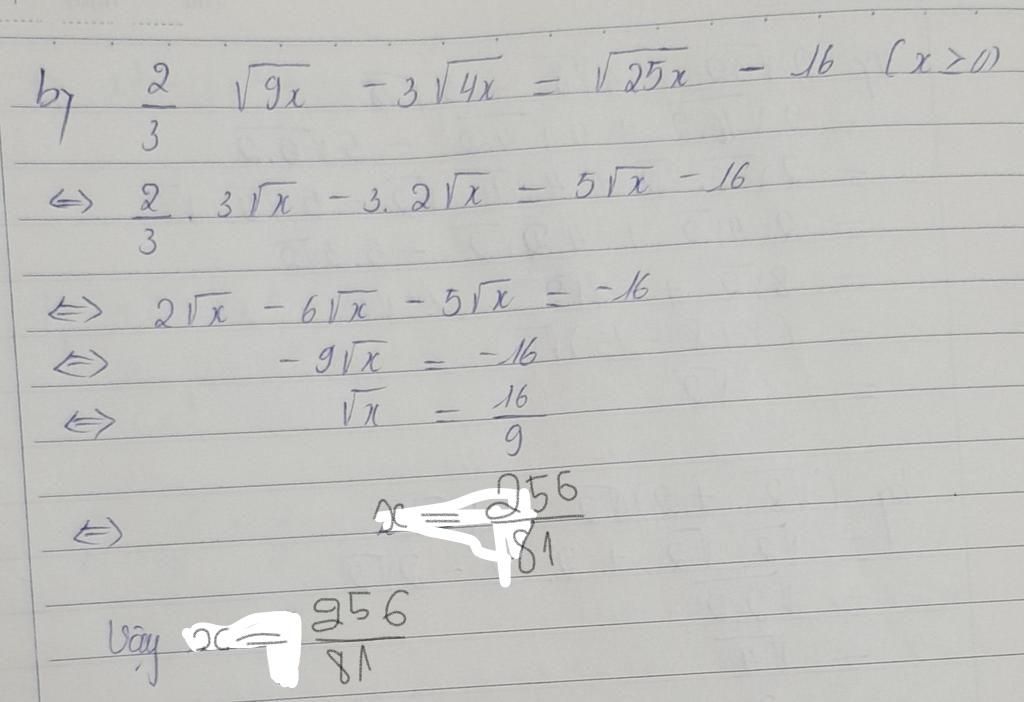 b) 2/3 √9x - 3√4x = √25x - 16 (x ≥ 0)
⇔ 2/3 . 3√x - 3. 2√x = 5√x - 16
⇔ 2√x - 6√x - 5√x = -16
⇔ - 9√x = -16
⇔ √x = 16/9
⇔ x = 256/81
Vậy x = 256/81